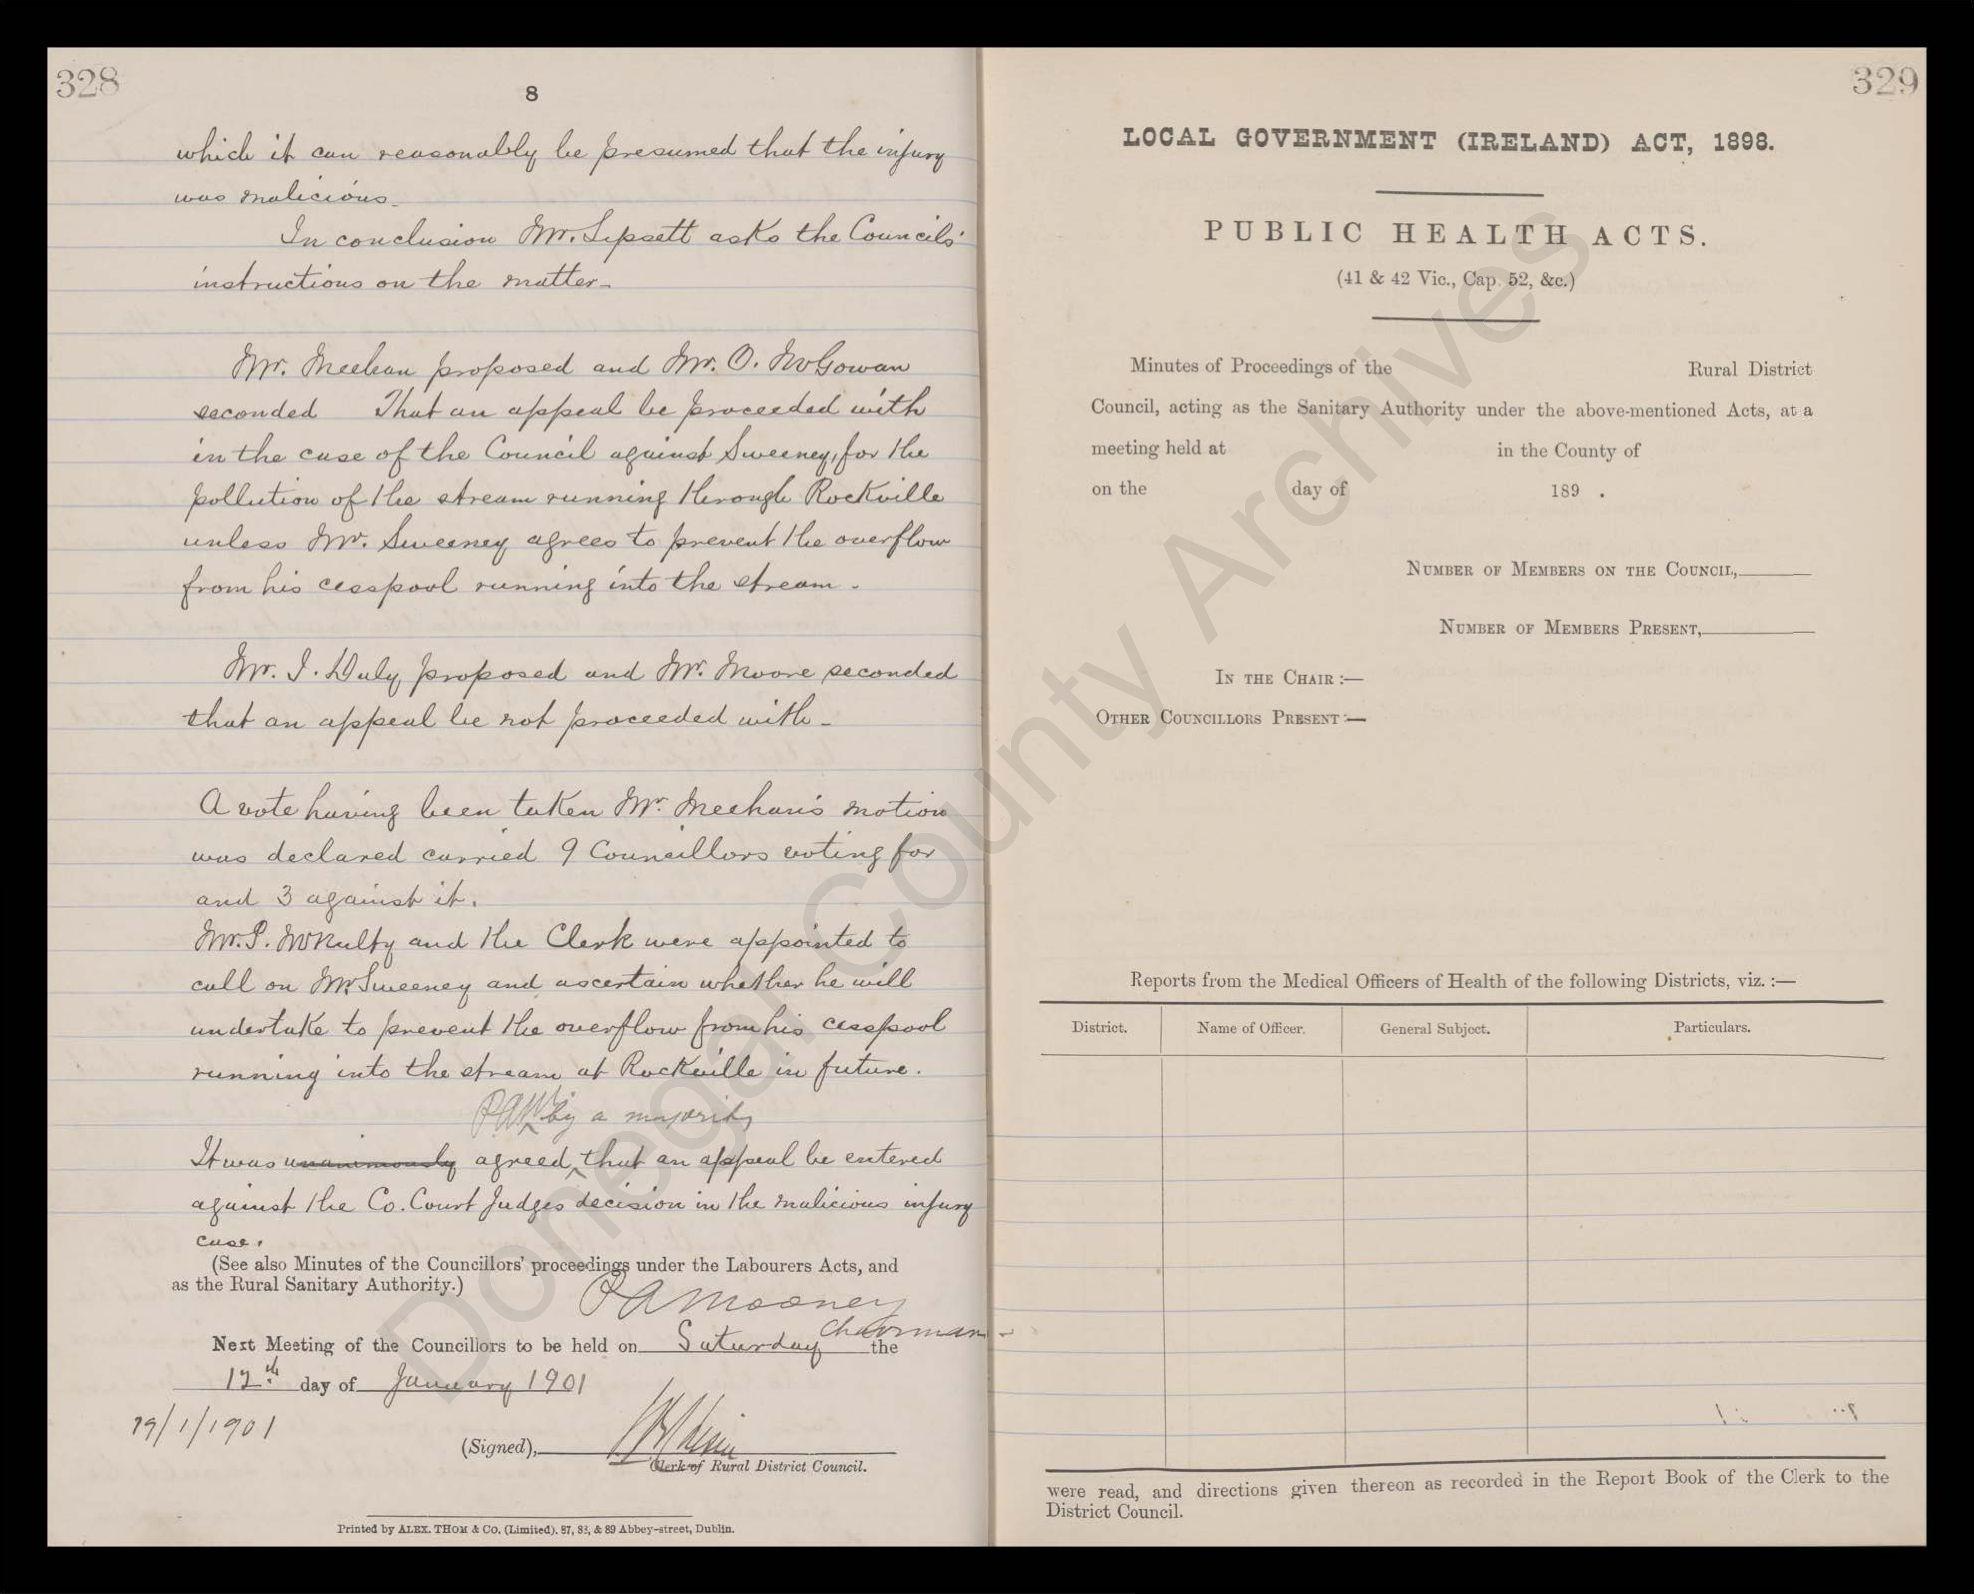 328
8
which it can reasonably be presumed that the injury
was malicious.
In conclusion Mr. Lipsett asks the Councils'
instructions on the matter.
Mr. Meehan proposed and Mr. O. McGowan
seconded That an appeal be proceeded with
in the case of the Council against Sweeney, for the
pollution of the stream running through Rockville
unless Mr. Sweeney agrees to prevent the overflow
from his cesspool running into the stream.
Mr. J. Daly proposed and Mr. Moore seconded
that an appeal be not proceeded with.
A vote having been taken Mr. Meehan's motion
was declared carried 9 Councillors voting for
and 3 against it.
Mr. P. McNulty and the Clerk were appointed to
call on Mr Sweeney and ascertain whether he will
undertake to prevent the overflow from his cesspool
running into the stream at Rockville in future.
PAM by a majority
It was unanimously agreed that an appeal be entered
against the Co. Court Judges decision in the malicious injury
case.
(See also Minutes of the Councillors' proceedings under the Labourers Acts, and
as the Rural Sanitary Authority.)
P A Mooney
Chairman
Next Meeting of the Councillors to be held on Saturday the
12th day of January 1901
19/1/1901
(Signed),
Clerk of Rural District Council.
Printed by ALEX. THOM & Co. (Limited). 87, 88, & 89 Abbey-street, Dublin.
329
LOCAL GOVERNMENT (IRELAND) ACT, 1898.
PUBLIC HEALTH ACTS.
(41 & 42 Vic., Cap. 52, &c.)
Minutes of Proceedings of the Rural District
Council, acting as the Sanitary Authority under the above-mentioned Acts, at a
meeting held at in the County of
on the day of 189 .
NUMBER OF MEMBERS ON THE COUNCIL,
NUMBER OF MEMBERS PRESENT,
IN THE CHAIR :—
OTHER COUNCILLORS PRESENT :—
Reports from the Medical Officers of Health of the following Districts, viz. :—
District. Name of Officer. General Subject. Particulars.
were read, and directions given thereon as recorded in the Report Book of the Clerk to the
District Council.
Donegal County Archives